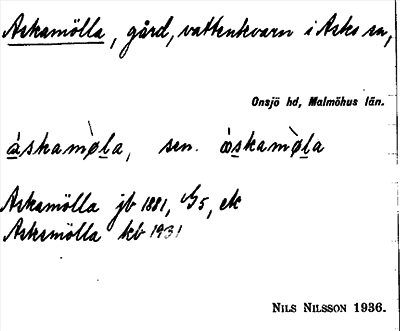 Askamölla, gård, vattenkvarn i Asks sn,
Onsjö hd, Malmöhus län.
áskamø̀la, sen. áskamø̀la
Askamölla jb 1881, ek
Askamölla kb 1931
NILS NILSSON 1936.